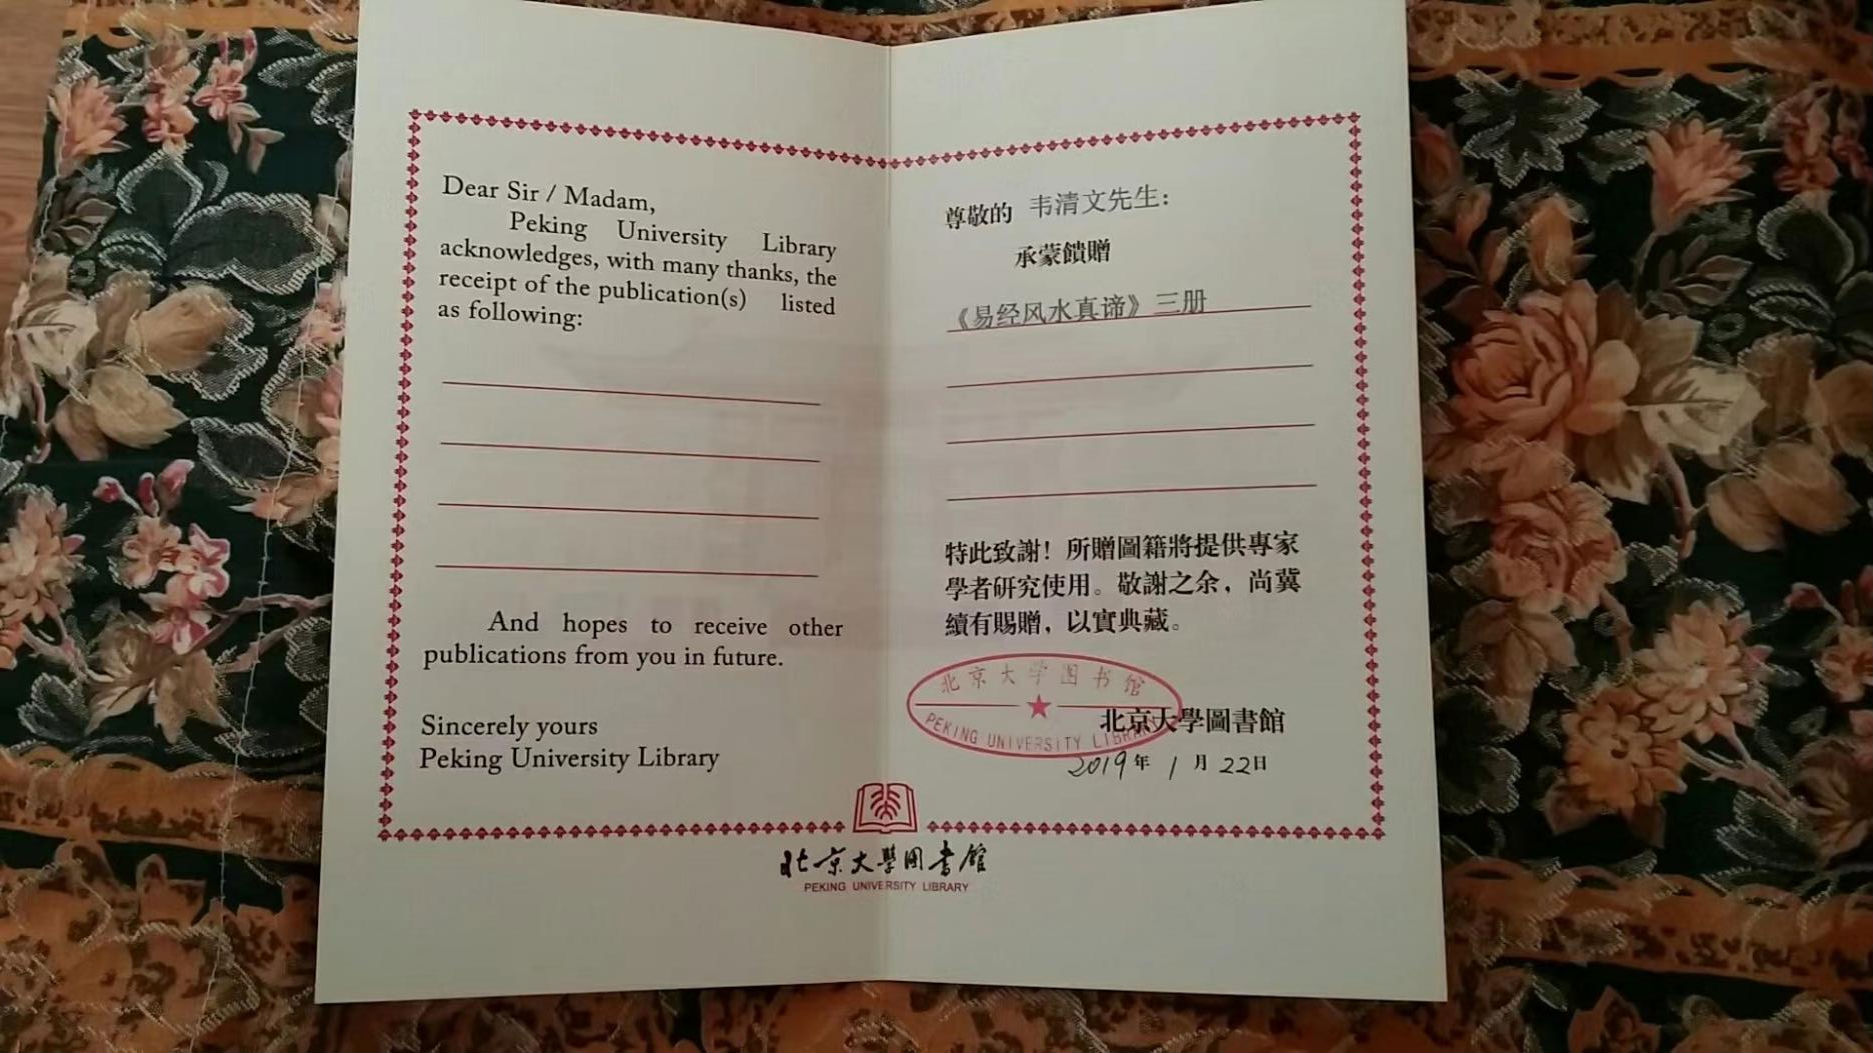 Dear Sir / Madam,
Peking University Library
acknowledges, with many thanks, the
receipt of the publication(s) listed
as following:
And hopes to receive other
publications from you in future.
Sincerely yours
Peking University Library
尊敬的 韦清文先生：
承蒙饋贈
《易经风水真谛》三册
特此致謝！所贈圖籍將提供專家
學者研究使用。敬謝之余，尚冀
續有賜贈，以實典藏。
北京大学图书馆
PEKING UNIVERSITY LIBRARY
北京大學圖書館
2019年 1 月 22日
北京大學圖書館
PEKING UNIVERSITY LIBRARY